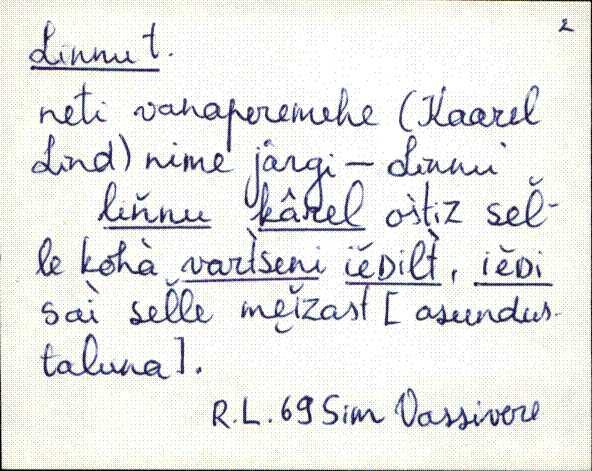 2
Linnu t.
neti vanaperemehe (Kaarel
Lind) nime järgi – Linnu
liňnu kârel os̀tiz sel̆-
le kohà vart̀seni iĕDilt̀, iĕDi
saì sel̆le mĕĭzast [asundus-
taluna].
R.L. 69 Sim Vassivere